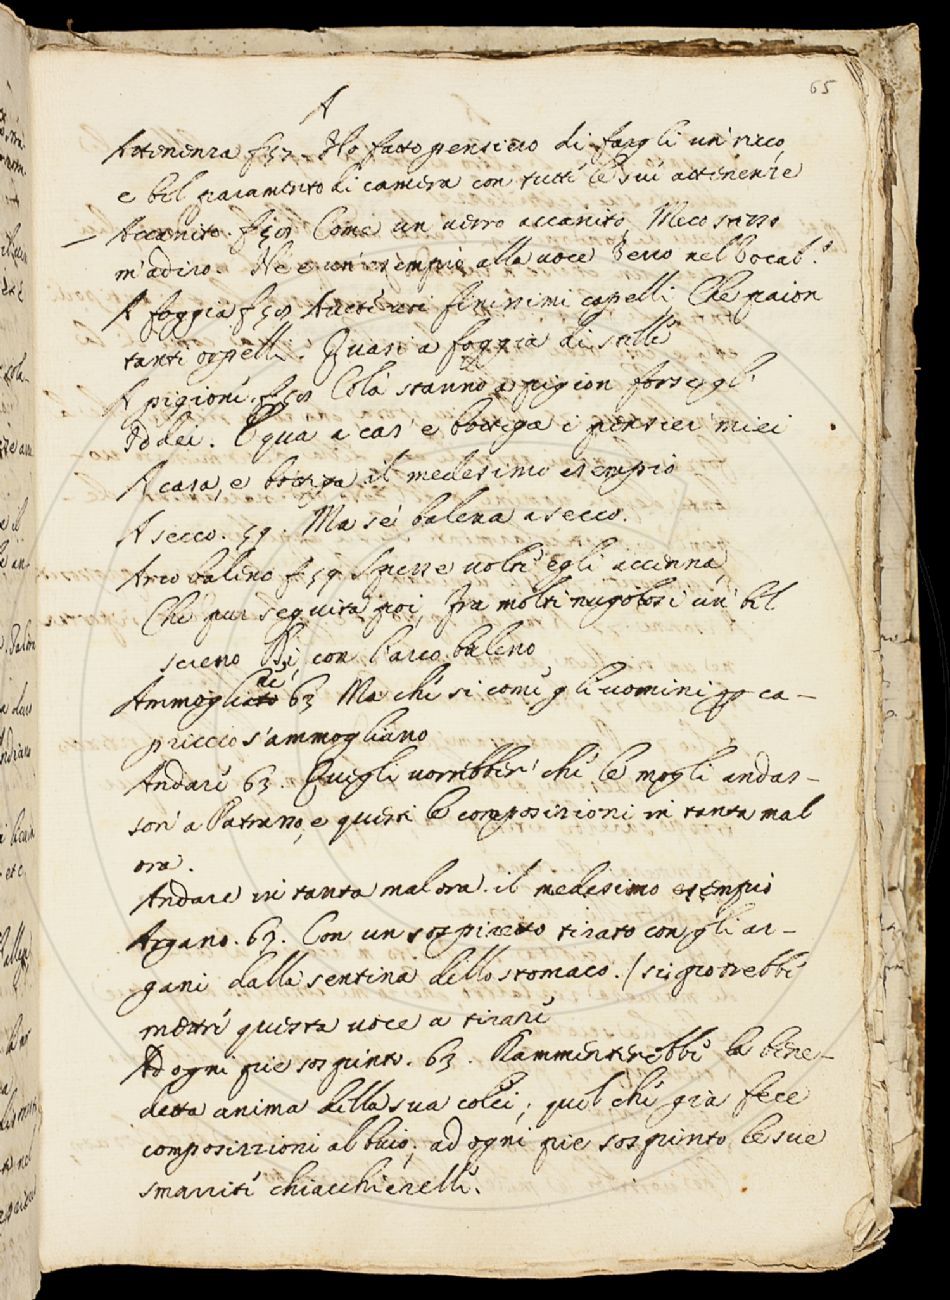 65
A
Attenenza f 57. Ho fatto pensiero di fargli un ricco,
e bel paramento di camera con tutti le sui attenenze
Accanito. f 58 Come un verro accanito, Meco stesso
m'adiro. Ne e un esempio alla voce Verro nel Vocab.º
A foggia f 58 finissimi capelli Che paion
tanti orpelli. Quasi a foggia di stille
A pigione. f 58 Colà stanno a pigion forse gl'
Iddei. E qua a cas' e bottega i pensier miei
A casa, e bottega il medesimo esempio
A secco. 59. Ma sei balena a secco.
Arco baleno f 59 Spesse volte egli accenna,
Che pur seguita poi, fra molti nugolosi un bel
sereno Di con l'arco baleno
Ammogliare 63 Ma che si come gli uomini per ca-
priccio s'ammogliano
Andare 63. Quegli vorrebber' che le mogli andas-
son' a Patrasso, e questi le composizioni in tanta mal
ora.
Andare in tanta malora. il medesimo esempio
Argano. 63. Con un sospiretto tirato con gli ar-
gani dalla sentina dello stomaco. / si potrebbe
mettre questa voce a tirare
Ad ogni pie sospinto. 63. Rammenterebbe la bene-
detta anima della sua colei, quel che gia fece
composizzioni al buio, ad ogni pie sospinto le sue
smarrite chiacchierelle.